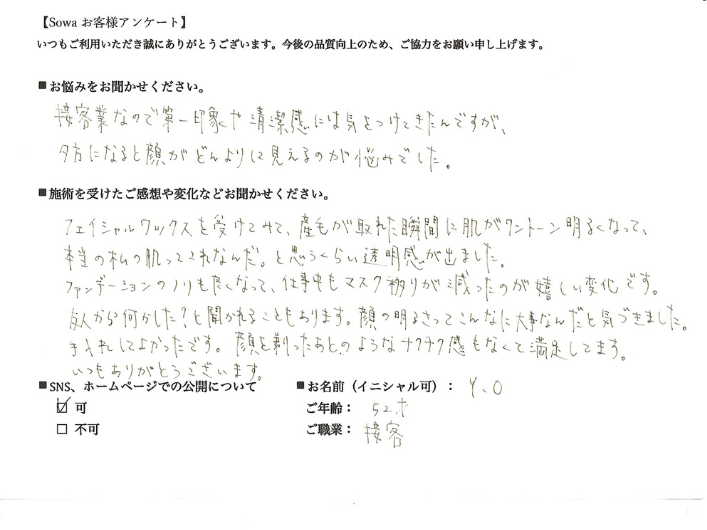 【Sowa お客様アンケート】
いつもご利用いただき誠にありがとうございます。今後の品質向上のため、ご協力をお願い申し上げます。
■お悩みをお聞かせください。
接客業なので第一印象や清潔感には気をつけてきたんですが、
夕方になると顔がどんよりして見えるのが悩みでした。
■施術を受けたご感想や変化などお聞かせください。
フェイシャルワックスを受けてみて、産毛が取れた瞬間に肌がワントーン明るくなって、
本当の私の肌ってこれなんだ。と思うくらい透明感が出ました。
ファンデーションのノリも良くなって、仕事中もマスク移りが減ったのが嬉しい変化です。
友人から何かした?と聞かれることもあります。顔の明るさってこんなに大事なんだと気づきました。
きれいにしてよかったです。顔を剃ったあとのようなチクチク感もなくて満足してます。
いつもありがとうございます。
■SNS、ホームページでの公開について
☑ 可
☐ 不可
■お名前（イニシャル可）： Y.O
ご年齢： 52才
ご職業： 接客